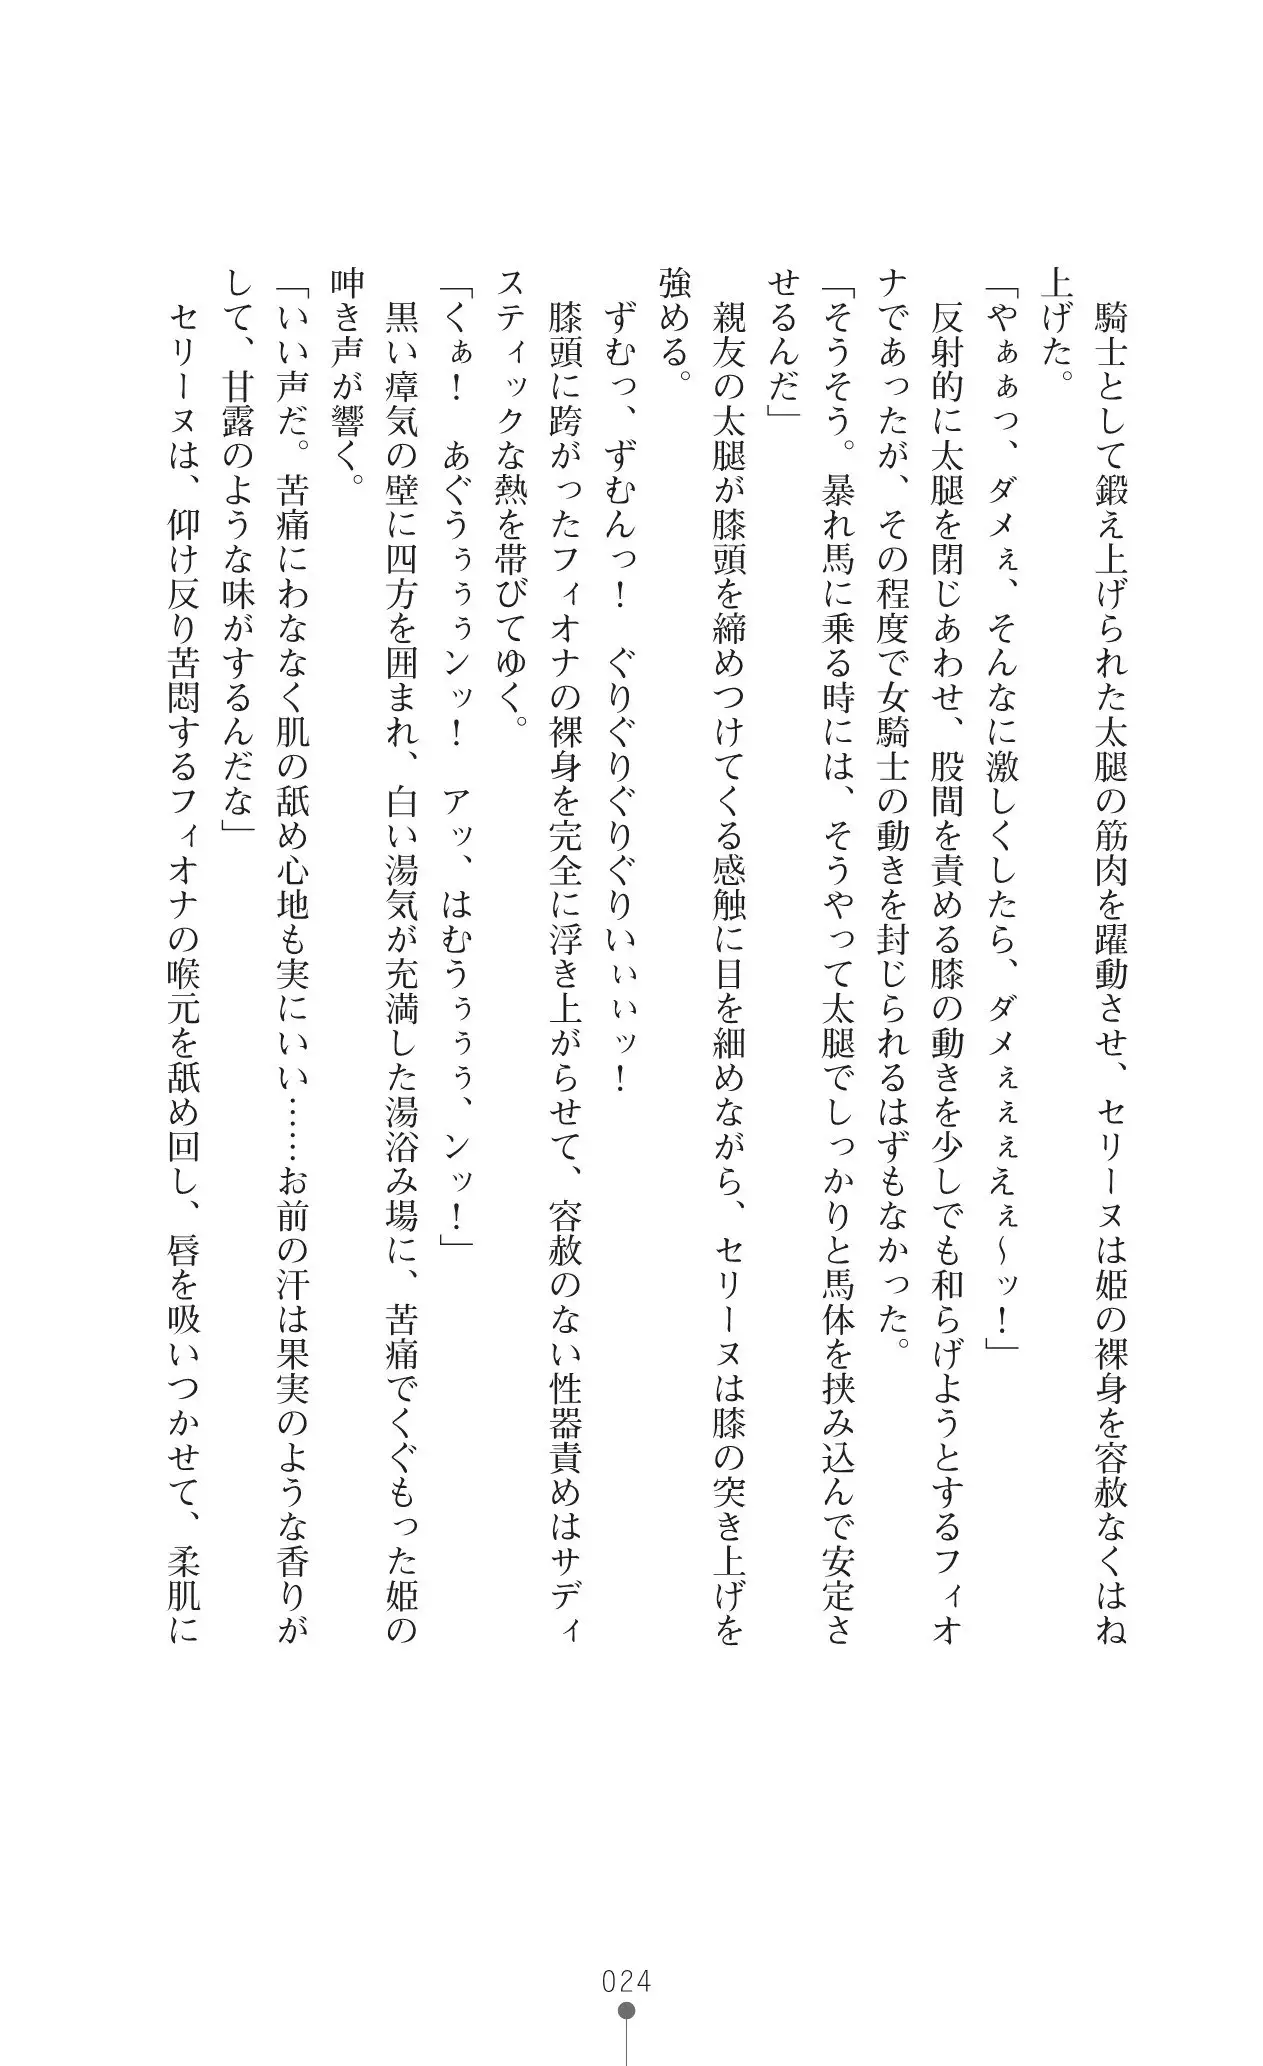 騎士として鍛え上げられた太腿の筋肉を躍動させ、セリーヌは姫の裸身を容赦なくはね
上げた。
「やぁぁっ、ダメぇ、そんなに激しくしたら、ダメぇぇぇえぇ～ッ！」
反射的に太腿を閉じあわせ、股間を責める膝の動きを少しでも和らげようとするフィオ
ナであったが、その程度で女騎士の動きを封じられるはずもなかった。
「そうそう。暴れ馬に乗る時には、そうやって太腿でしっかりと馬体を挟み込んで安定さ
せるんだ」
親友の太腿が膝頭を締めつけてくる感触に目を細めながら、セリーヌは膝の突き上げを
強める。
ずむっ、ずむんっ！　ぐりぐりぐりぐりいぃぃッ！
膝頭に跨がったフィオナの裸身を完全に浮き上がらせて、容赦のない性器責めはサディ
スティックな熱を帯びてゆく。
「くぁ！　あぐうぅぅぅンッ！　アッ、はむうぅぅぅ、ンッ！」
黒い瘴気の壁に四方を囲まれ、白い湯気が充満した湯浴み場に、苦痛でくぐもった姫の
呻き声が響く。
「いい声だ。苦痛にわななく肌の舐め心地も実にいい……お前の汗は果実のような香りが
して、甘露のような味がするんだな」
セリーヌは、仰け反り苦悶するフィオナの喉元を舐め回し、唇を吸いつかせて、柔肌に
024